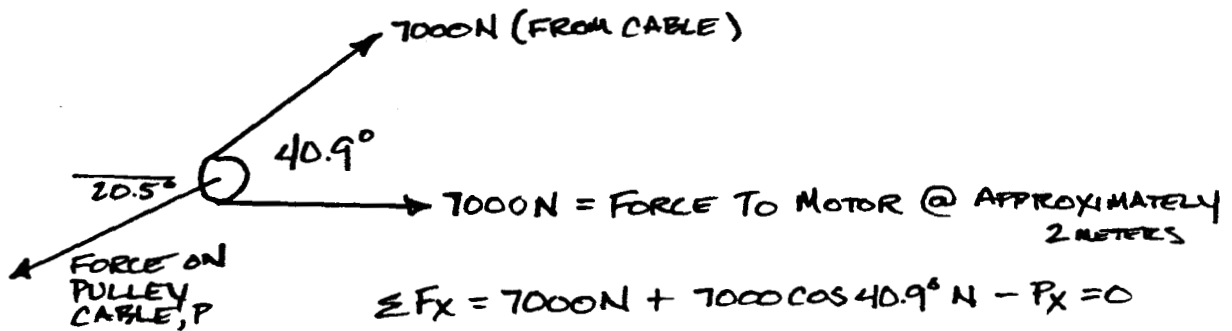 7000N (FROM CABLE)
40.9°
20.5°
7000N = FORCE TO MOTOR @ APPROXIMATELY
2 METERS
FORCE ON
PULLEY
CABLE, P
ΣFx = 7000N + 7000 COS 40.9° N - Px = 0